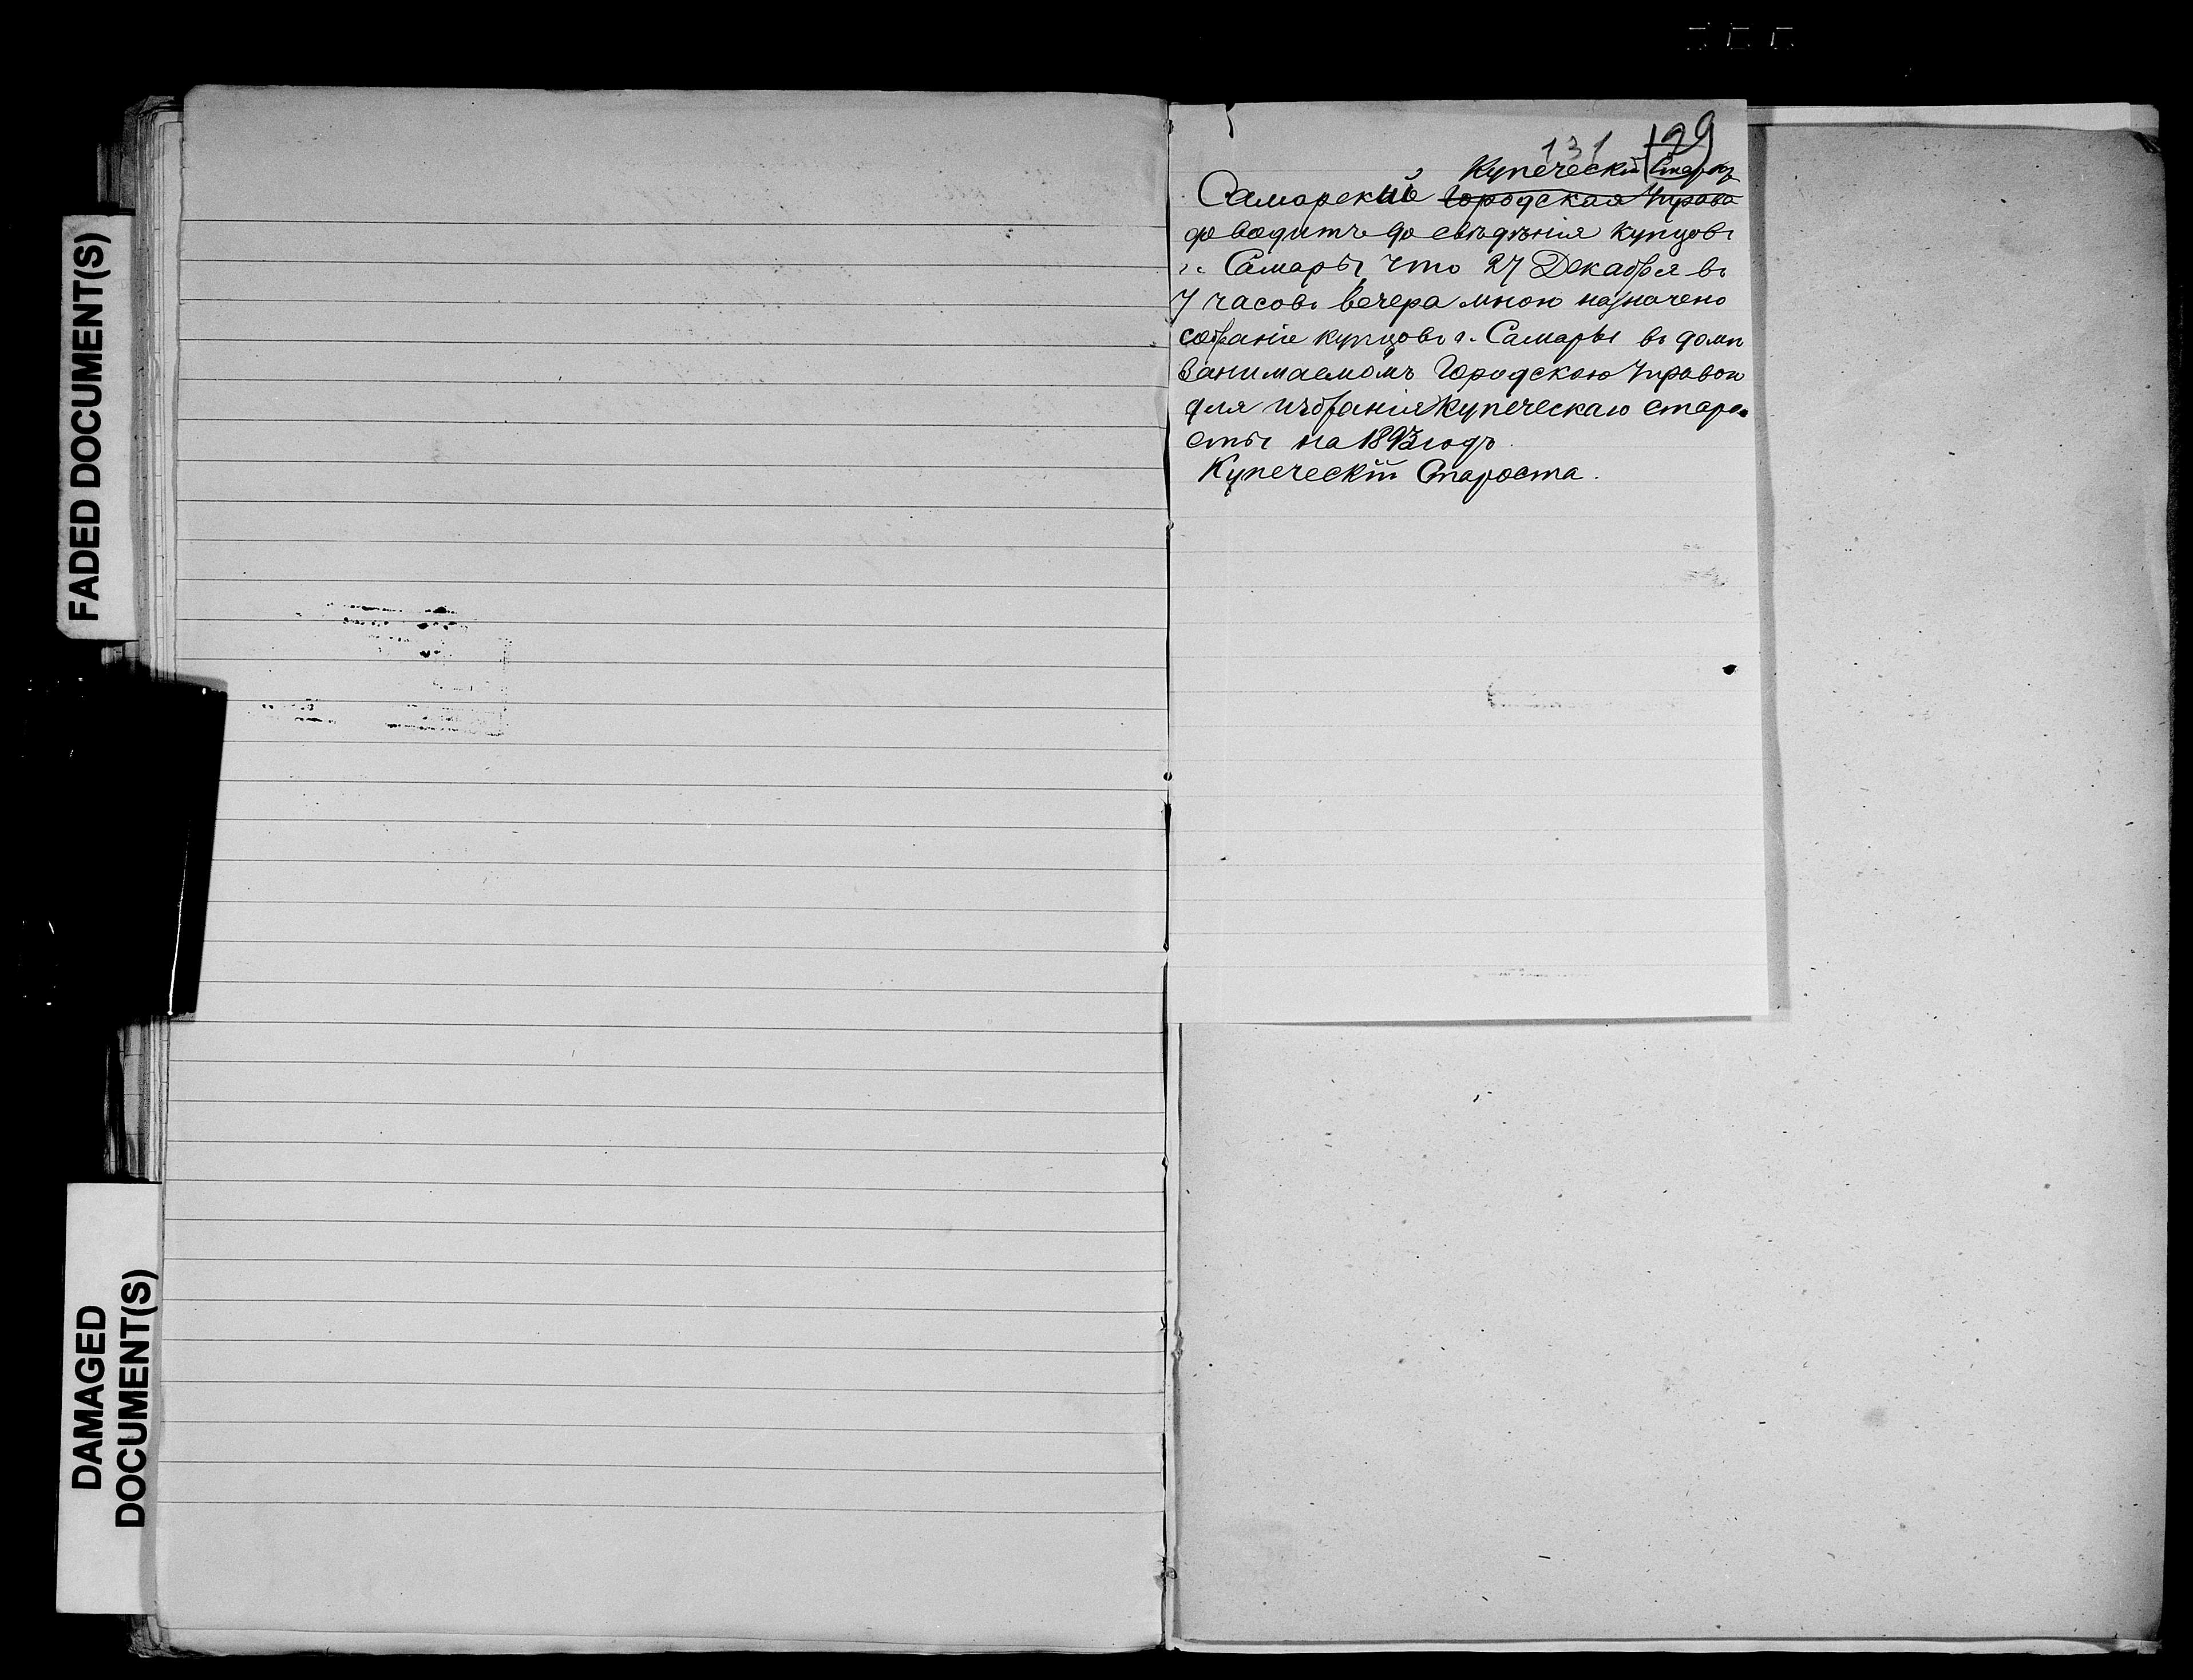 FADED DOCUMENT(S)
DAMAGED
DOCUMENT(S)
131 129
Купеческій Старос
Самарскій Городская Управа
доводитъ до свѣдѣнія купцовъ
г. Самары что 27 Декабря въ
7 часовъ вечера мною назначено
собраніе купцовъ г. Самары въ домѣ
занимаемомъ Городскою Управою
для избранія купеческаго старо-
сты на 1893 годъ.
Купеческій Староста.